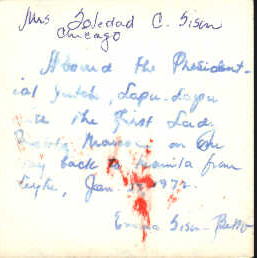 Mrs Soledad C. Sison
Chicago
Aboard the President-
ial Yacht, Lapu-Lapu
the First Lady
Marcos, on the
way back to Manila from
Leyte, Jan.
Emma Sison-